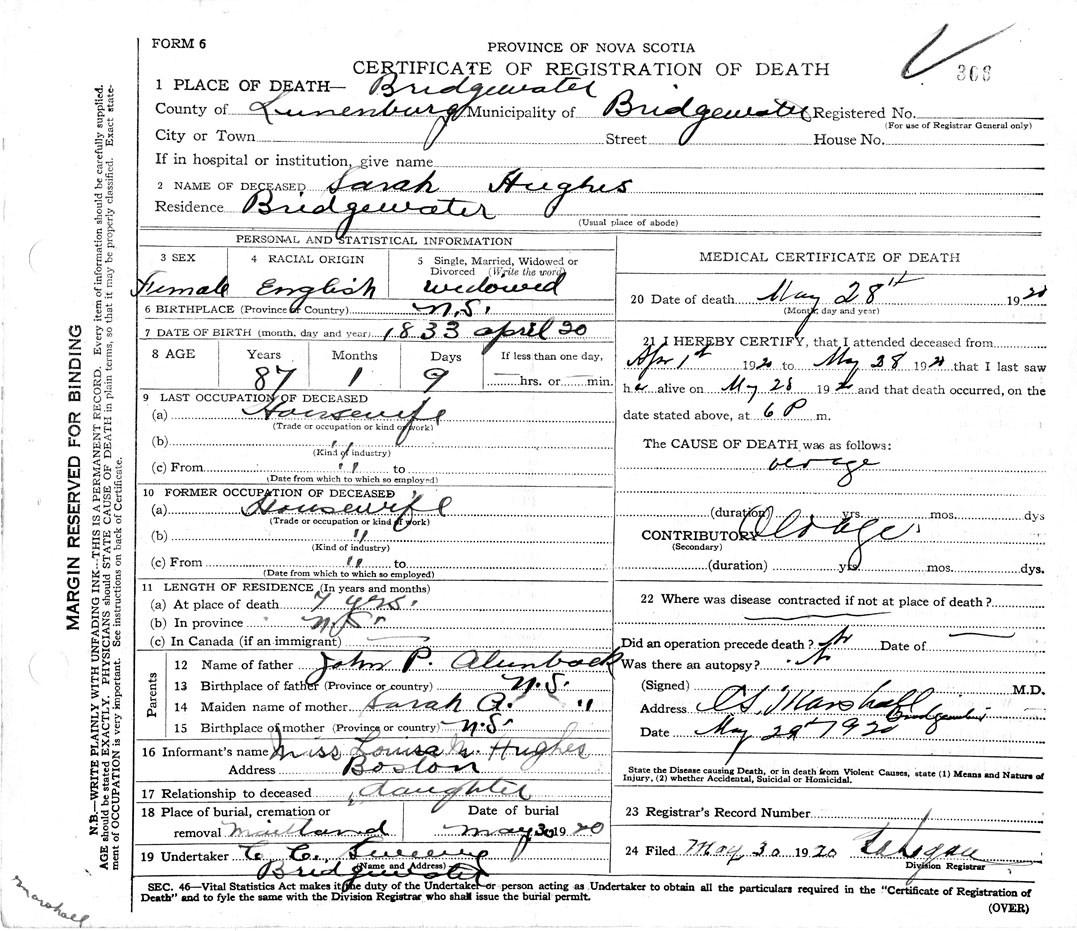 FORM 6
PROVINCE OF NOVA SCOTIA
CERTIFICATE OF REGISTRATION OF DEATH
308
1 PLACE OF DEATH— Bridgewater
County of Lunenburg Municipality of Bridgewater Registered No.
(For use of Registrar General only)
City or Town Street House No.
If in hospital or institution, give name
2 NAME OF DECEASED Sarah Hughes
Residence Bridgewater
(Usual place of abode)
PERSONAL AND STATISTICAL INFORMATION
3 SEX 4 RACIAL ORIGIN 5 Single, Married, Widowed or Divorced (Write the word)
Female English widowed
6 BIRTHPLACE (Province or Country) N.S.
7 DATE OF BIRTH (month, day and year) 1833 april 20
8 AGE Years Months Days If less than one day,
87 1 9 hrs. or min.
9 LAST OCCUPATION OF DECEASED
(a) Housewife
(Trade or occupation or kind of work)
(b) "
(Kind of industry)
(c) From " to
(Date from which to which so employed)
10 FORMER OCCUPATION OF DECEASED
(a) Housewife
(Trade or occupation or kind of work)
(b) "
(Kind of industry)
(c) From " to
(Date from which to which so employed)
11 LENGTH OF RESIDENCE (In years and months)
(a) At place of death 7 yrs.
(b) In province N.S.
(c) In Canada (if an immigrant)
Parents
12 Name of father John P.
13 Birthplace of father (Province or country) N.S.
14 Maiden name of mother Sarah A. "
15 Birthplace of mother (Province or country) N.S.
16 Informant's name Miss Louisa Hughes
Address Boston
17 Relationship to deceased daughter
18 Place of burial, cremation or removal Maitland
Date of burial May 30 1920
19 Undertaker C. C.
(Name and Address)
Bridgewater
MEDICAL CERTIFICATE OF DEATH
20 Date of death May 28th 1920
(Month, day and year)
21 I HEREBY CERTIFY, that I attended deceased from
Apr 1st 1920 to May 28 1920 that I last saw
her alive on May 28 1920 and that death occurred, on the
date stated above, at 6 P m.
The CAUSE OF DEATH was as follows:
(duration) yrs. mos. dys
CONTRIBUTORY Old age
(Secondary)
(duration) yrs. mos. dys.
22 Where was disease contracted if not at place of death?
Did an operation precede death? Date of
Was there an autopsy?
(Signed) Marshall M.D.
Address Bridgewater
Date May 29th 1920
State the Disease causing Death, or in death from Violent Causes, state (1) Means and Nature of
Injury, (2) whether Accidental, Suicidal or Homicidal.
23 Registrar's Record Number
24 Filed May 30 1920
Division Registrar
SEC. 46—Vital Statistics Act makes it the duty of the Undertaker or person acting as Undertaker to obtain all the particulars required in the "Certificate of Registration of
Death" and to fyle the same with the Division Registrar who shall issue the burial permit.
(OVER)
MARGIN RESERVED FOR BINDING
N.B.—WRITE PLAINLY WITH UNFADING INK—THIS IS A PERMANENT RECORD. Every item of information should be carefully supplied.
AGE should be stated EXACTLY. PHYSICIANS should STATE CAUSE OF DEATH in plain terms, so that it may be properly classified. Exact state-
ment of OCCUPATION is very important. See instructions on back of Certificate.
Marshall